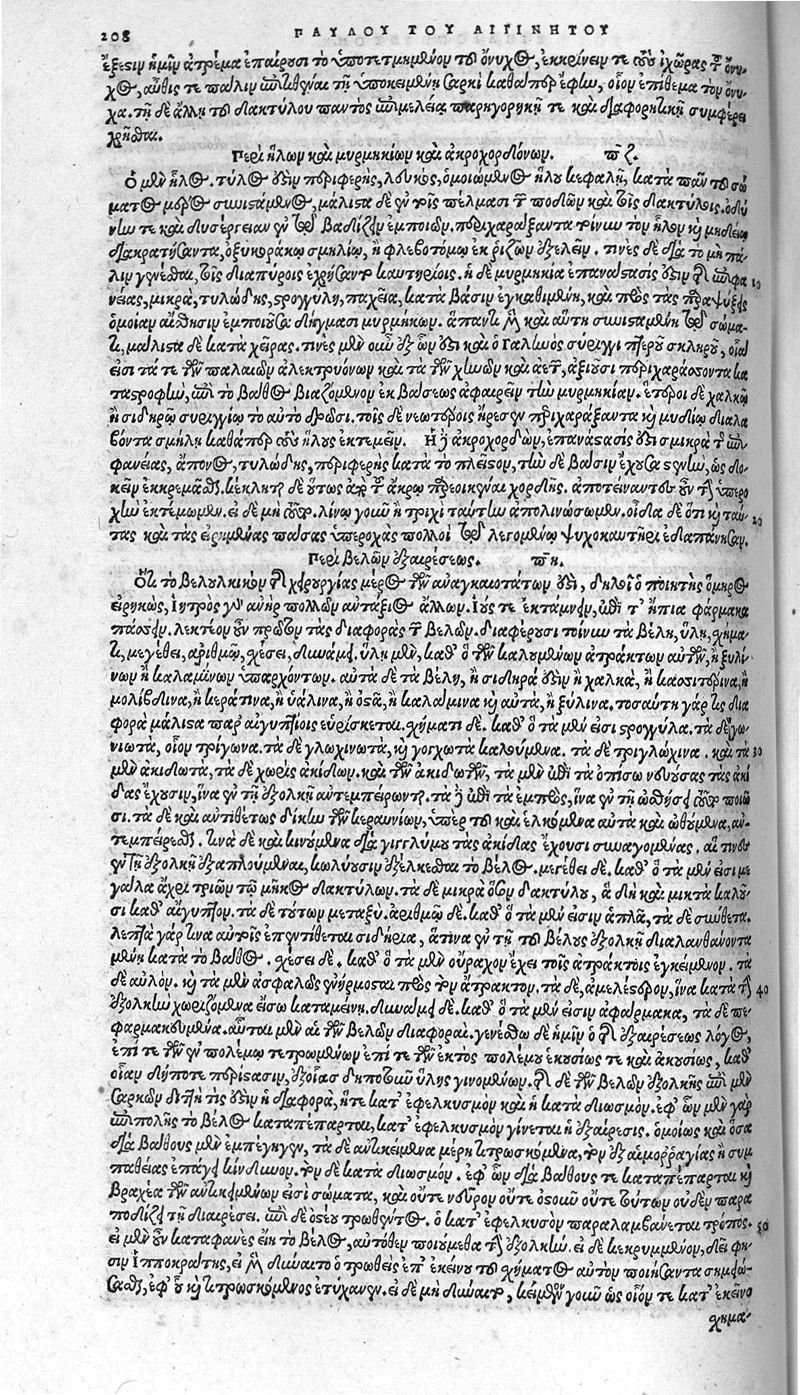 208 ΠΑΥΛΟΥ ΤΟΥ ΑΙΓΙΝΗΤΟΥ
ἔξεστιν ἡμῖν ἀτρέμα ἐπαίρουσι τὸ ὑποτετμημένον τοῦ ὄνυχος, ἐκκρίνειν τε τοὺς ἰχῶρας τοῦ ὄνυ-
χος, αὖθις τε πάλιν ἐπιθεῖναι τῇ ὑποκειμένῃ σαρκὶ καθάπερ ἔφην, οἷον ἐπίθεμα τὸν ὄνυ-
χα. τῇ δὲ ἄλλῃ τοῦ δακτύλου παντὸς ἐπιμελείᾳ παρηγορικῇ τε καὶ διαφορητικῇ συμφέρει
χρῆσθαι.
Περὶ ἥλων καὶ μυρμηκίων καὶ ἀκροχορδόνων. πζ.
Ὁ μὲν ἧλος τύλος ἐστὶν περιφερὴς, λευκὸς, ὁμοιώμενος ἥλου κεφαλῇ, κατὰ πᾶν τοῦ σώ
ματος μέρος συνιστάμενος, μάλιστα δὲ ἐν τοῖς πέλμασι τῶν ποδῶν καὶ τοῖς δακτύλοις. ὀδύ
νην τε καὶ δυσέργειαν ἐν τῷ βαδίζειν ἐμποιῶν. περιχαράξαντα τοίνυν τὸν ἧλον καὶ μυδίῳ
διακρατήσαντα, ὀξυκοράκῳ σμηλίῳ, ἢ φλεβοτόμῳ ἐκ ῥιζῶν ἐξελεῖν. τινὲς δὲ διὰ τὸ μὴ πά-
λιν γενέσθαι, τοῖς διαπύροις ἐχρήσαντο καυτηρίοις. ἡ δὲ μυρμηκία ἐπανάστασίς ἐστιν τῆς ἐπιφα 10
νείας, μικρὰ, τυλώδης, στρογγύλη, παχεῖα, κατὰ βάσιν ἐγκαθημένη, καὶ πρὸς τὰς προσψύξεις
ὁμοίαν αἴσθησιν ἐμποιοῦσα δήγμασι μυρμήκων. ἅπαντι δὲ καὶ αὕτη συνισταμένη τῷ σώμα-
τι, μάλιστα δὲ κατὰ χεῖρας. τινὲς μὲν οὖν ἐξ ὧν ἐστι καὶ ὁ Γαληνὸς σύριγγι πτεροῦ σκληροῦ, οἷαί
εἰσι τά τε τῶν παλαιῶν ἀλεκτρυόνων καὶ τὰ τῶν χηνῶν καὶ ἀετῶν, ἀξιοῦσι περιχαράσσοντα κα
ταστροφὴν, ἐπὶ τὸ βάθος βιαζόμενον ἐκ βάσεως ἀφαιρεῖν τὴν μυρμηκίαν. ἕτεροι δὲ χαλκῷ
ἢ σιδηρῷ συριγγίῳ τὸ αὐτὸ δρῶσι. τοῖς δὲ νεωτέροις ἤρεσεν περιχαράξαντα καὶ μυδίῳ διαλα
βόντα σμήλῃ καθάπερ τοὺς ἥλους ἐκτεμεῖν. Ἡ δὲ ἀκροχορδὼν, ἐπανάστασίς ἐστι σμικρὰ τῆς ἐπι-
φανείας, ἄπονος, τυλώδης, περιφερὴς κατὰ τὸ πλεῖστον, τὴν δὲ βάσιν ἔχουσα στενὴν, ὡς δο-
κεῖν ἐκκρεμᾶσθαι. κέκληται δὲ οὕτως ἀπὸ τοῦ ἄκρῳ προσεοικέναι χορδῆς. ἀποτείναντες οὖν τὴν ὑπερο
χὴν ἐκτέμωμεν. εἰ δὲ μὴ τοῦτο. λίνῳ γοῦν ἢ τριχὶ ταύτην ἀπολινώσωμεν. οἶδα δὲ ὅτι καὶ ταύ- 20
τας καὶ τὰς εἰρημένας πάσας ὑπεροχὰς πολλοὶ τῷ λεγομένῳ ψυχροκαυτῆρι ἐδαπάνησαν.
Περὶ βελῶν ἐξαιρέσεως. πη.
Ὅτι τὸ βελουλκικὸν τῆς χειρουργίας μέρος τῶν ἀναγκαιοτάτων ἐστὶ, δηλοῖ ὁ ποιητὴς ὅμηρος
εἰρηκὼς, Ἰητρὸς γὰρ ἀνὴρ πολλῶν ἀντάξιος ἄλλων. Ἰούς τε ἐκτάμνειν, ἐπί τ’ ἤπια φάρμακα
πάσσειν. λεκτέον οὖν πρῶτον τὰς διαφορὰς τῶν βελῶν. διαφέρουσι τοίνυν τὰ βέλη, ὕλῃ, σχήμα-
τι, μεγέθει, ἀριθμῷ, σχέσει, δυνάμει. ὕλῃ μὲν, καθ’ ὃ τῶν καλουμένων ἀτράκτων αὐτῶν, ἢ ξυλί-
νων ἢ καλαμίνων ὑπαρχόντων. αὐτὰ δὲ τὰ βέλη, ἢ σιδηρᾶ ἐστιν ἢ χαλκᾶ, ἢ κασσιτέρινα, ἢ
μολίβδινα, ἢ κεράτινα, ἢ ὑάλινα, ἢ ὀστᾶ, ἢ καλάμινα καὶ αὐτὰ, ἢ ξύλινα. τοσαύτη γάρ τις δια
φορὰ μάλιστα παρ’ αἰγυπτίοις εὑρίσκεται. σχήματι δὲ. καθ’ ὃ τὰ μέν εἰσι στρογγύλα. τὰ δὲ γω-
νιωτὰ, οἷον τρίγωνα. τὰ δὲ γλωχινωτὰ, καὶ λογχωτὰ καλούμενα. τὰ δὲ τριγλώχινα. καὶ τὰ 30
μὲν ἀκιδωτὰ, τὰ δὲ χωρὶς ἀκίδων. καὶ τῶν ἀκιδωτῶν, τὰ μὲν ἐπὶ τὰ ὀπίσω νευούσας τὰς ἀκί
δας ἔχουσιν, ἵνα ἐν τῇ ἐξολκῇ ἀντεμπείρωνται. τὰ δὲ ἐπὶ τὰ ἔμπροσθεν, ἵνα ἐν τῇ ὠθήσει τοῦτο ποιῶ
σι. τὰ δὲ καὶ ἀντιθέτως δίκην τῶν κεραυνίων, ὑπὲρ τοῦ καὶ ἑλκόμενα αὐτὰ καὶ ὠθούμενα, ἀν-
τεμπείρεσθαι. τινὰ δὲ καὶ κινούμενα διὰ γιγγλύμου τὰς ἀκίδας ἔχουσι συναγομένας. αἵ τινες
ἐν τῇ ἐξολκῇ ἐξαπλούμεναι, κωλύουσιν ἐξέλκεσθαι τὸ βέλος. μεγέθει δὲ. καθ’ ὃ τὰ μέν εἰσι με
γάλα ἄχρι τριῶν τῷ μῆκος δακτύλων. τὰ δὲ μικρὰ ὅσον δακτύλου, ἃ δὴ καὶ μικτὰ καλοῦ-
σι καθ’ αἴγυπτον. τὰ δὲ τούτων μεταξύ. ἀριθμῷ δὲ. καθ’ ὃ τὰ μέν εἰσιν ἁπλᾶ, τὰ δὲ σύνθετα.
λεπτὰ γάρ τινα αὐτοῖς ἐπεντίθεται σιδήρια, ἅτινα ἐν τῇ τοῦ βέλους ἐξολκῇ διαλανθάνοντα
μένῃ κατὰ τὸ βάθος. σχέσει δὲ. καθ’ ὃ τὰ μὲν οὔραχον ἔχει τοῖς ἀτράκτοις ἐγκείμενον. τὰ
δὲ αὐλόν. καὶ τὰ μὲν ἀσφαλῶς ἐνήρμοσται πρὸς τὸν ἄτρακτον. τὰ δὲ, ἀμελέστερον, ἵνα κατὰ τὴν 40
ἐξολκὴν χωριζόμενα εἴσω καταμείνῃ. δυνάμει δὲ. καθ’ ὃ τὰ μέν εἰσιν ἀφάρμακα, τὰ δὲ πε-
φαρμακευμένα. αὗται μὲν αἱ τῶν βελῶν διαφοραί. γενέσθω δὲ ἡμῖν ὁ τῆς ἐξαιρέσεως λόγος,
ἐπί τε τῶν ἐν πολέμῳ τετρωμένων ἐπί τε τῶν ἐκτὸς πολέμου ἑκουσίως τε καὶ ἀκουσίως, καθ’
οἵαν δήποτε περίστασιν, ἐξ οἵας δηποτοῦν ὕλης γινομένων. τῆς δὲ τῶν βελῶν ἐξολκῆς ἐπὶ μὲν
σαρκῶν διττή τίς ἐστιν ἡ διαφορὰ, ἥ τε κατ’ ἐφελκυσμὸν καὶ ἡ κατὰ διωσμὸν. ἐφ’ ὧν μὲν γὰρ
ἐπιπολῆς τὸ βέλος καταπέπαρται, κατ’ ἐφελκυσμὸν γίνεται ἡ ἐξαίρεσις. ὁμοίως καὶ ὅσα
διὰ βάθους μὲν ἐμπέπηγεν, τὰ δὲ ἀντικείμενα μέρη τιτρωσκόμενα, τὸν ἐξ αἱμορραγίας ἢ συμ
παθείας ἐπάγει κίνδυνον. τὸν δὲ κατὰ διωσμόν. ἐφ’ ὧν διὰ βάθους τε καταπέπαρται καὶ
βραχέα τῶν ἀντικειμένων εἰσὶ σώματα, καὶ οὔτε νεῦρον οὔτε ὀστοῦν οὔτε τούτων οὐδὲν παρα
ποδίζει τῇ διαιρέσει. ἐπὶ δὲ ὀστέου τρωθέντος. ὁ κατ’ ἐφελκυσὸν παραλαμβάνεται τρόπος. 50
εἰ μὲν οὖν καταφανὲς εἴη τὸ βέλος, αὐτόθεν ποιούμεθα τὴν ἐξολκήν. εἰ δὲ κεκρυμμένον, δεῖ φη-
σιν Ἱπποκράτης, εἰ μὲν δύναιτο ὁ τρωθεὶς ἐπ’ ἐκείνου τοῦ σχήματος αὐτὸν ποιήσαντα σημειώ-
σασθαι, ἐφ’ οὗ καὶ τιτρωσκόμενος ἐτύχανεν. εἰ δὲ μὴ δύναιτο, κείμενον γοῦν ὡς οἷόν τε κατ’ ἐκεῖνο
σχῆμα·